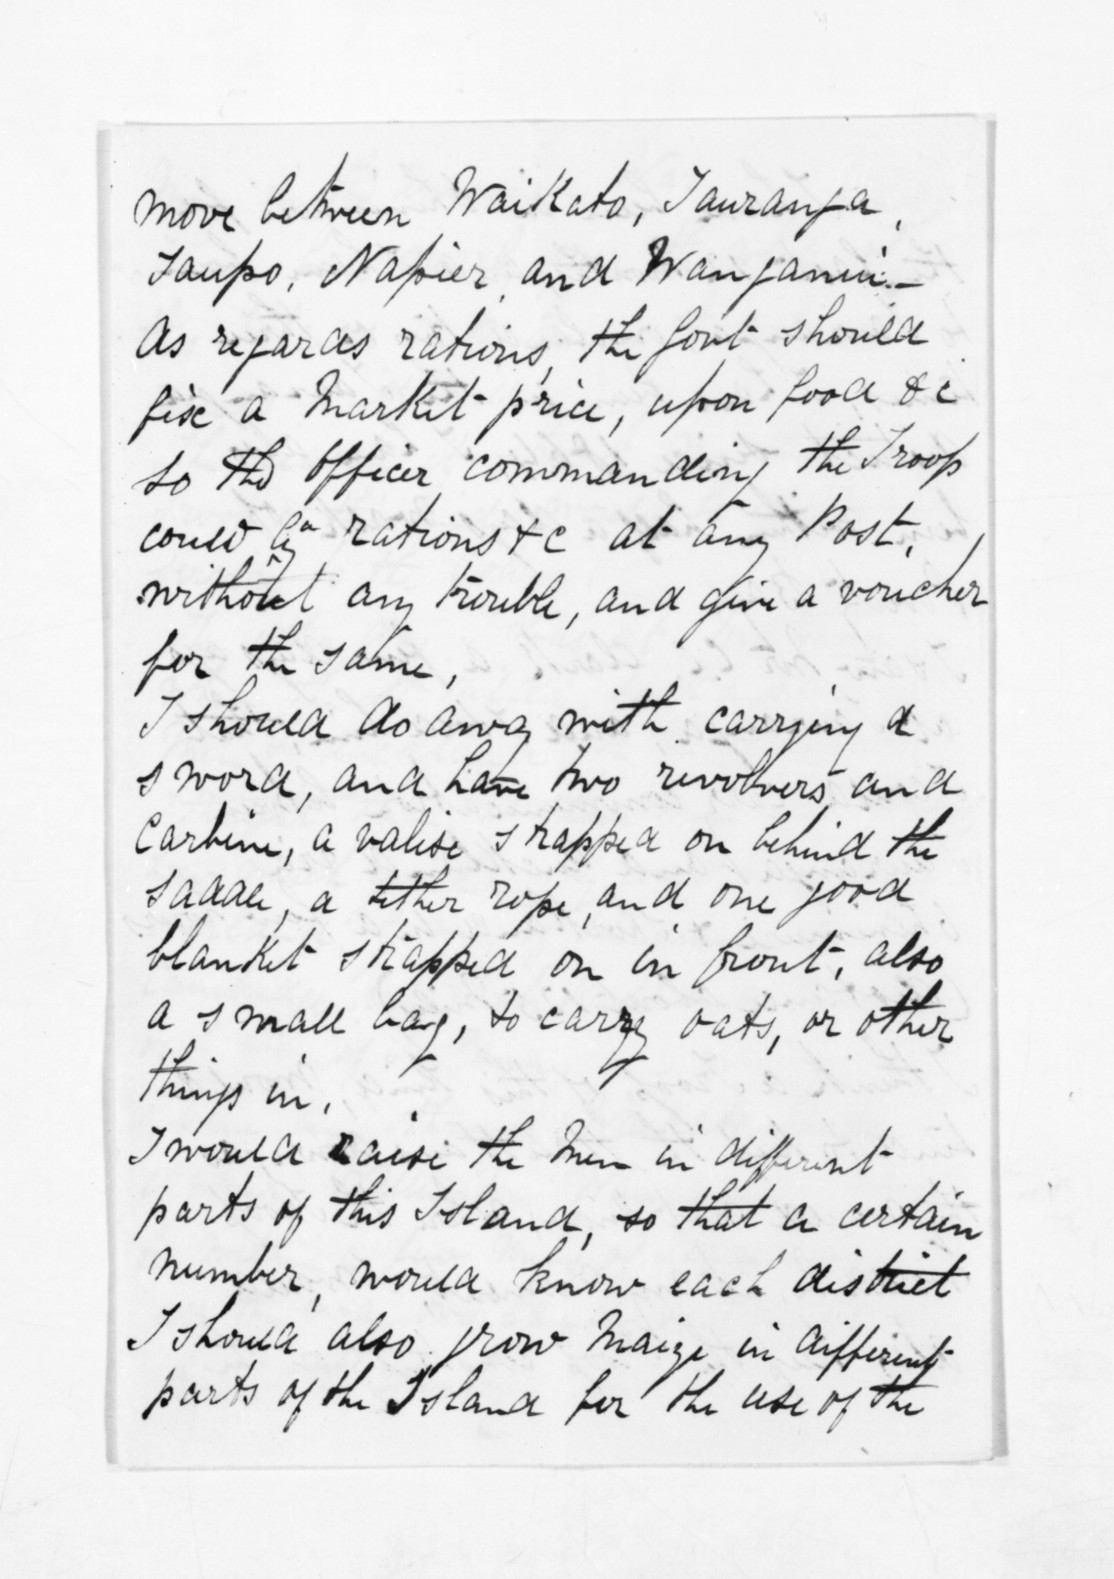 move between Waikato, Tauranga,
Taupo, Napier, and Wanganui.—
As regards rations, the Govt should
fix a Market price, upon food &c
so the Officer commanding the Troop
could rations &c at any Post,
without any trouble, and give a voucher
for the same,
I should do away with carrying a
sword, and have two revolvers, and
Carbine, a valise strapped on behind the
saddle, a tether rope, and one good
blanket strapped on in front, also
a small bag, to carry oats, or other
things in,
I would raise the Men in different
parts of this Island, so that a certain
number, would know each district
I should also grow Maize in different
parts of the Island for the use of the